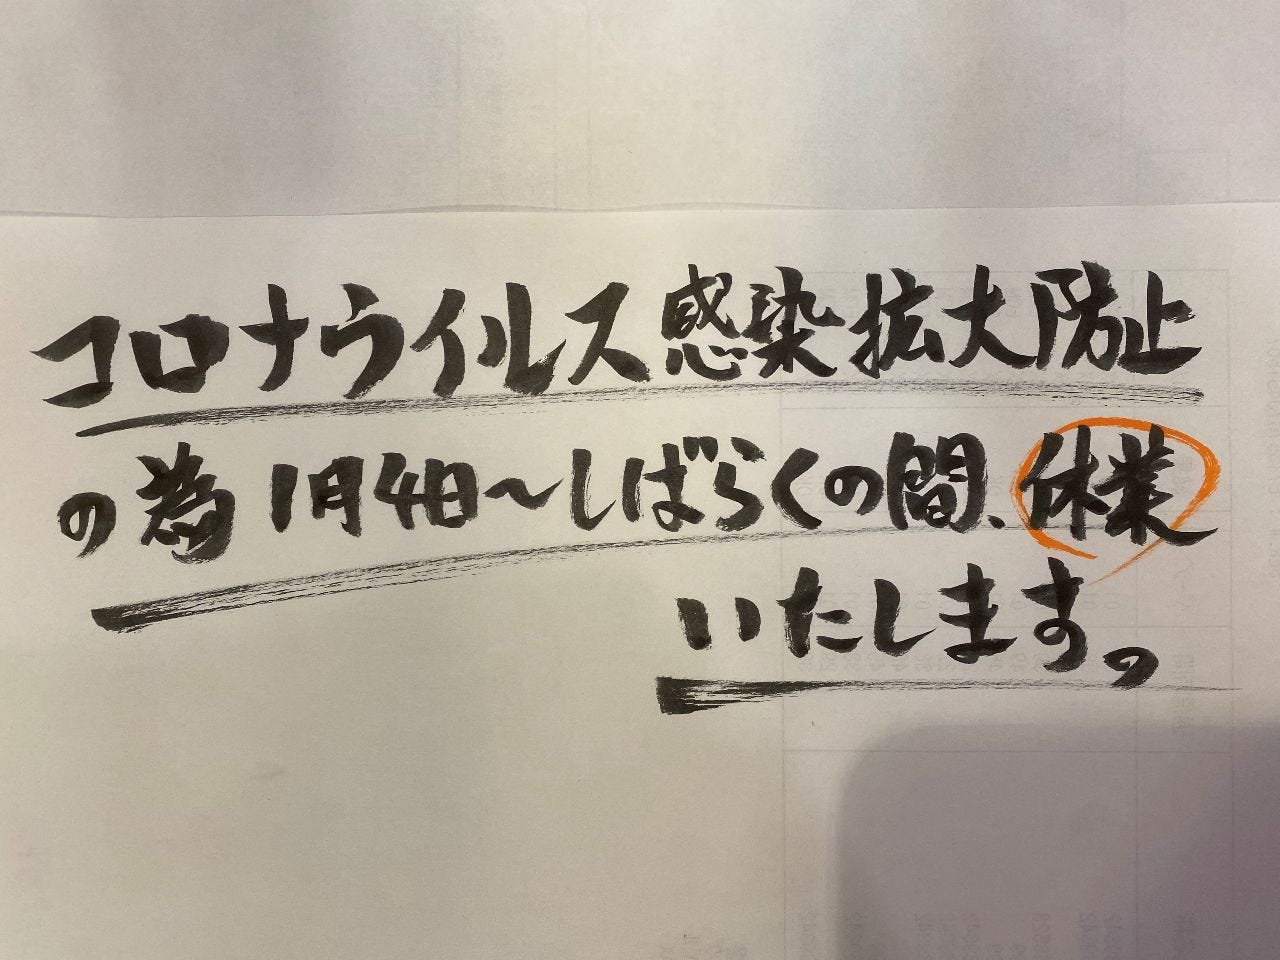 コロナウイルス感染拡大防止
の為1月4日～しばらくの間、休業
いたします。